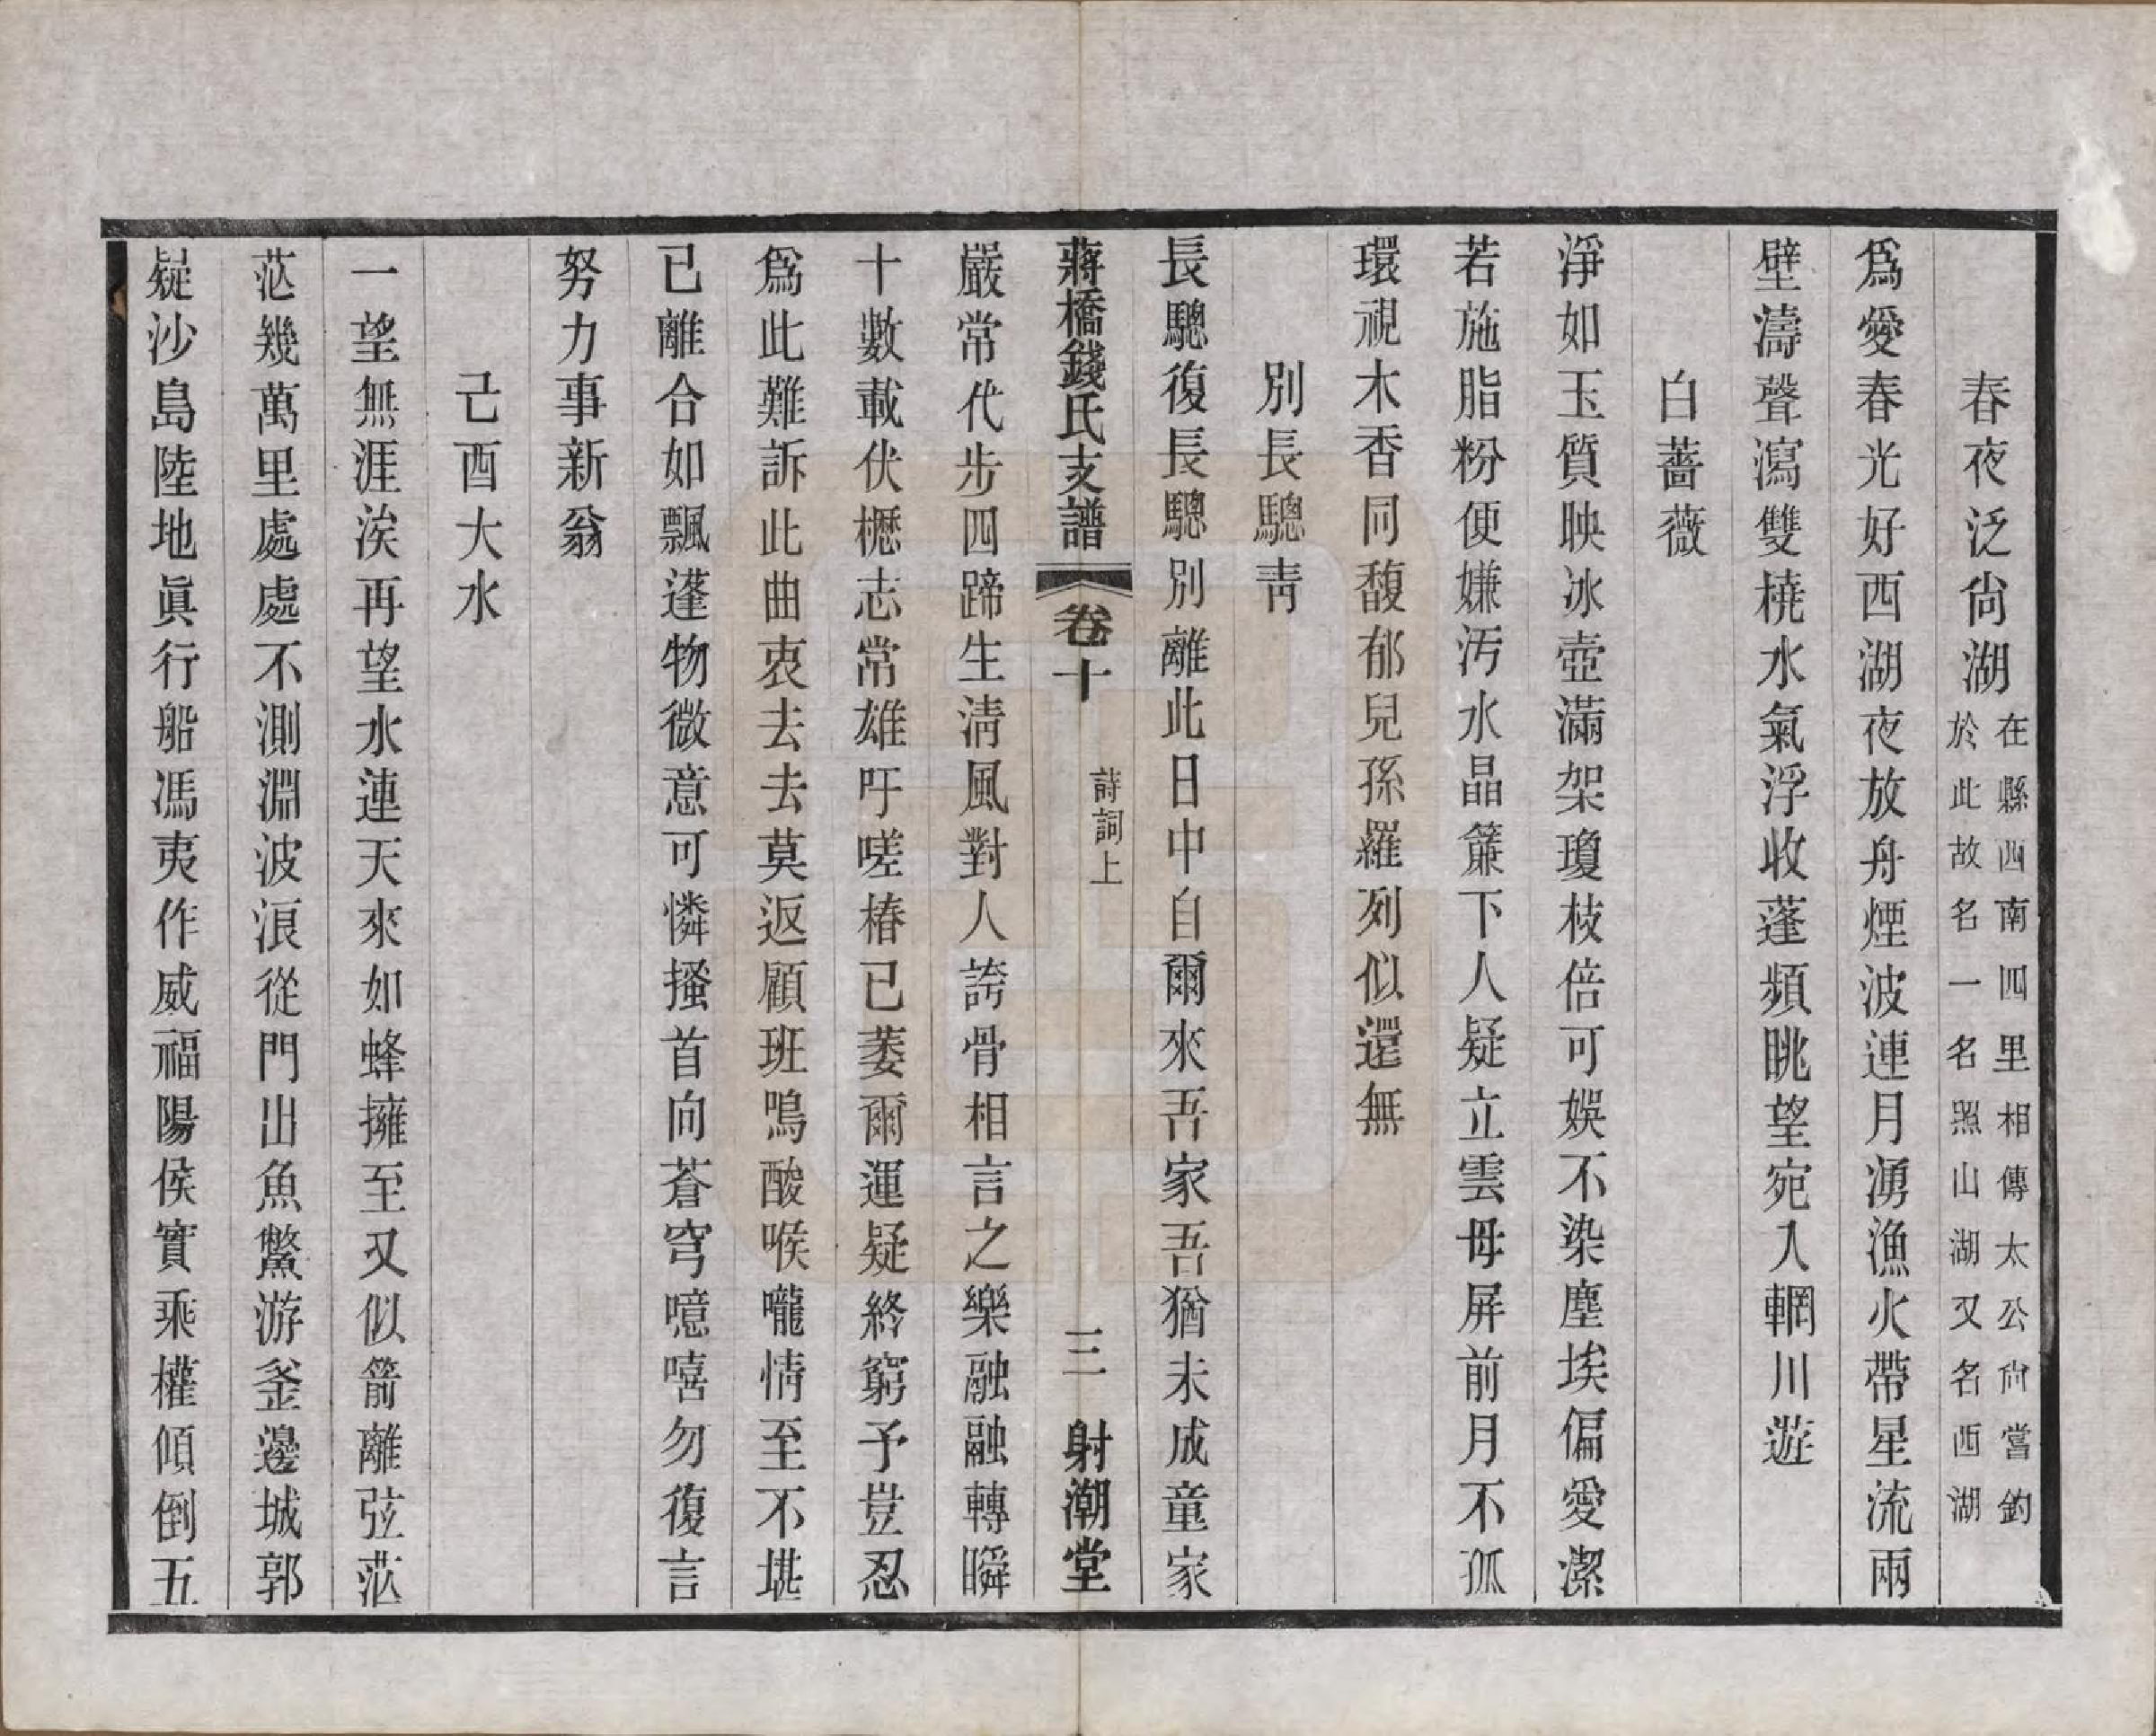 春夜泛尙湖在縣西南四里相傳太公尙嘗釣於此故名一名照山湖又名西湖
爲愛春光好西湖夜放舟煙波連月湧漁火帶星流兩
壁濤聲瀉雙橈水氣浮收蓬頻眺望宛入輞川遊
白薔薇
淨如玉質映冰壺滿架瓊枝倍可娛不染塵埃偏愛潔
若施脂粉便嫌汚水晶簾下人疑立雲母屏前月不孤
環視木香同馥郁兒孫羅列似還無
別長驄靑
長驄復長驄別離此日中自爾來吾家吾猶未成童家
蔣橋錢氏支譜 卷十 詩詞上 三 射潮堂
嚴常代步四蹄生淸風對人誇骨相言之樂融融轉瞬
十數載伏櫪志常雄吁嗟椿已萎爾運疑終窮予豈忍
爲此難訴此曲衷去去莫返顧班鳴酸喉嚨情至不堪
已離合如飄蓬物微意可憐搔首向蒼穹噫嘻勿復言
努力事新翁
己酉大水
一望無涯涘再望水連天來如蜂擁至又似箭離弦茫
茫幾萬里處處不測淵波浪從門出魚鱉游釜邊城郭
疑沙島陸地眞行船馮夷作威福陽侯實乘權傾倒五